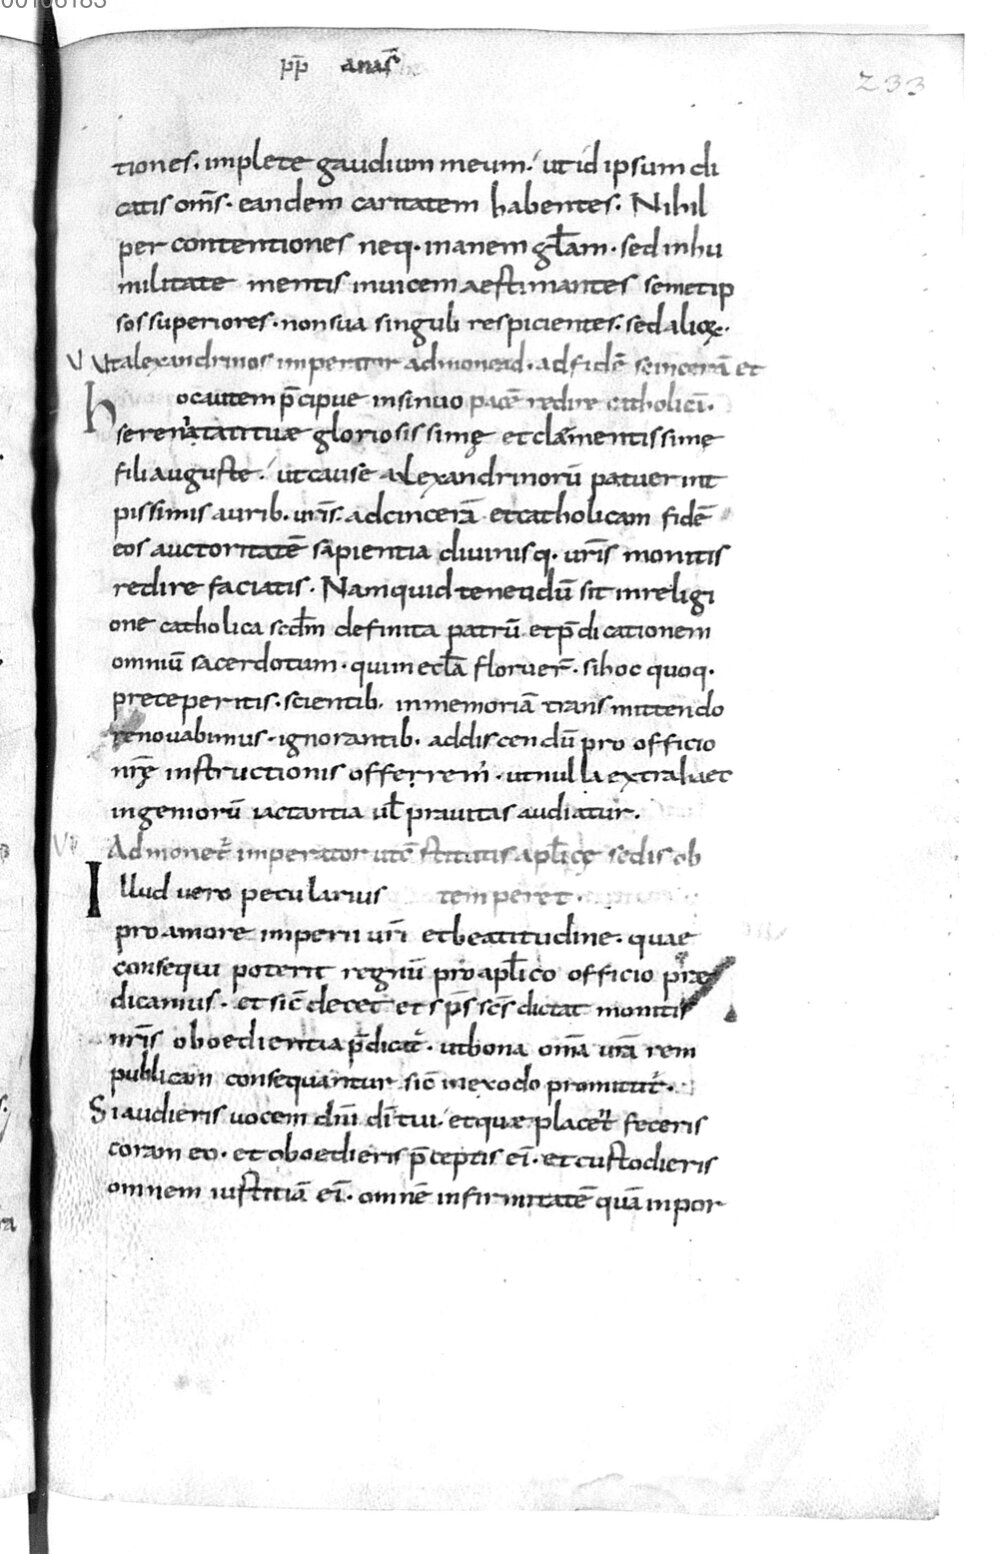 00106183
pp̄ anas̄
233
tiones. implete gaudium meum. ut id ipsum di
catis om̄s. eandem caritatem habentes. Nihil
per contentiones neq. inanem gl̄am. sed in hu
militate mentis inuicem aestimantes semetip
sos superiores. non sua singuli respicientes. sed alioꝝ.
VI Ut alexandrinos imperator admonead. ad fidē sincerā et
hoc autem p̄cipue insinuo pacē redire catholicā.
serenitati tuae gloriosissimę et clamentissimę
fili auguste. ut cause alexandrinorū patuerint
piissimis aurib. ur̄is. ad cincerā et catholicam fidē
eos auctoritatē sapientia diuinisq. ur̄is monitis
redire faciatis. Nam quid tenendū sit in religi
one catholica scd̄m definita patrū et p̄dicationem
omniū sacerdotum. qui in ecl̄a floruer̄. si hoc quoq.
preceperitis. scientib. in memoriā transmittendo
renouabimus. ignorantib. addiscendū pro officio
nr̄ę instructionis offerrem. ut nulla extra haec
ingeniorū iactantia ul̄ prauitas audiatur.
VII Admonet̄ imperator ut c̄stitutis apl̄icę sedis ob
Illud uero peculiarius temperet.
pro amore imperii ur̄i et beatitudine. quae
consequi poterit regnū pro apl̄ico officio prae
dicamus. et sic̄ decet et sp̄s sc̄s dictat monitis
nr̄is oboedientia p̄dicat̄. ut bona om̄a ur̄a rem
publicam consequantur sic̄ in exodo promittit̄.
Si audieris uocem dn̄i dī tui. et quae placet̄ feceris
coram eo. et oboedieris p̄ceptis eī. et custodieris
omnem iustitiā eī. omnē infirmitatē quā in por